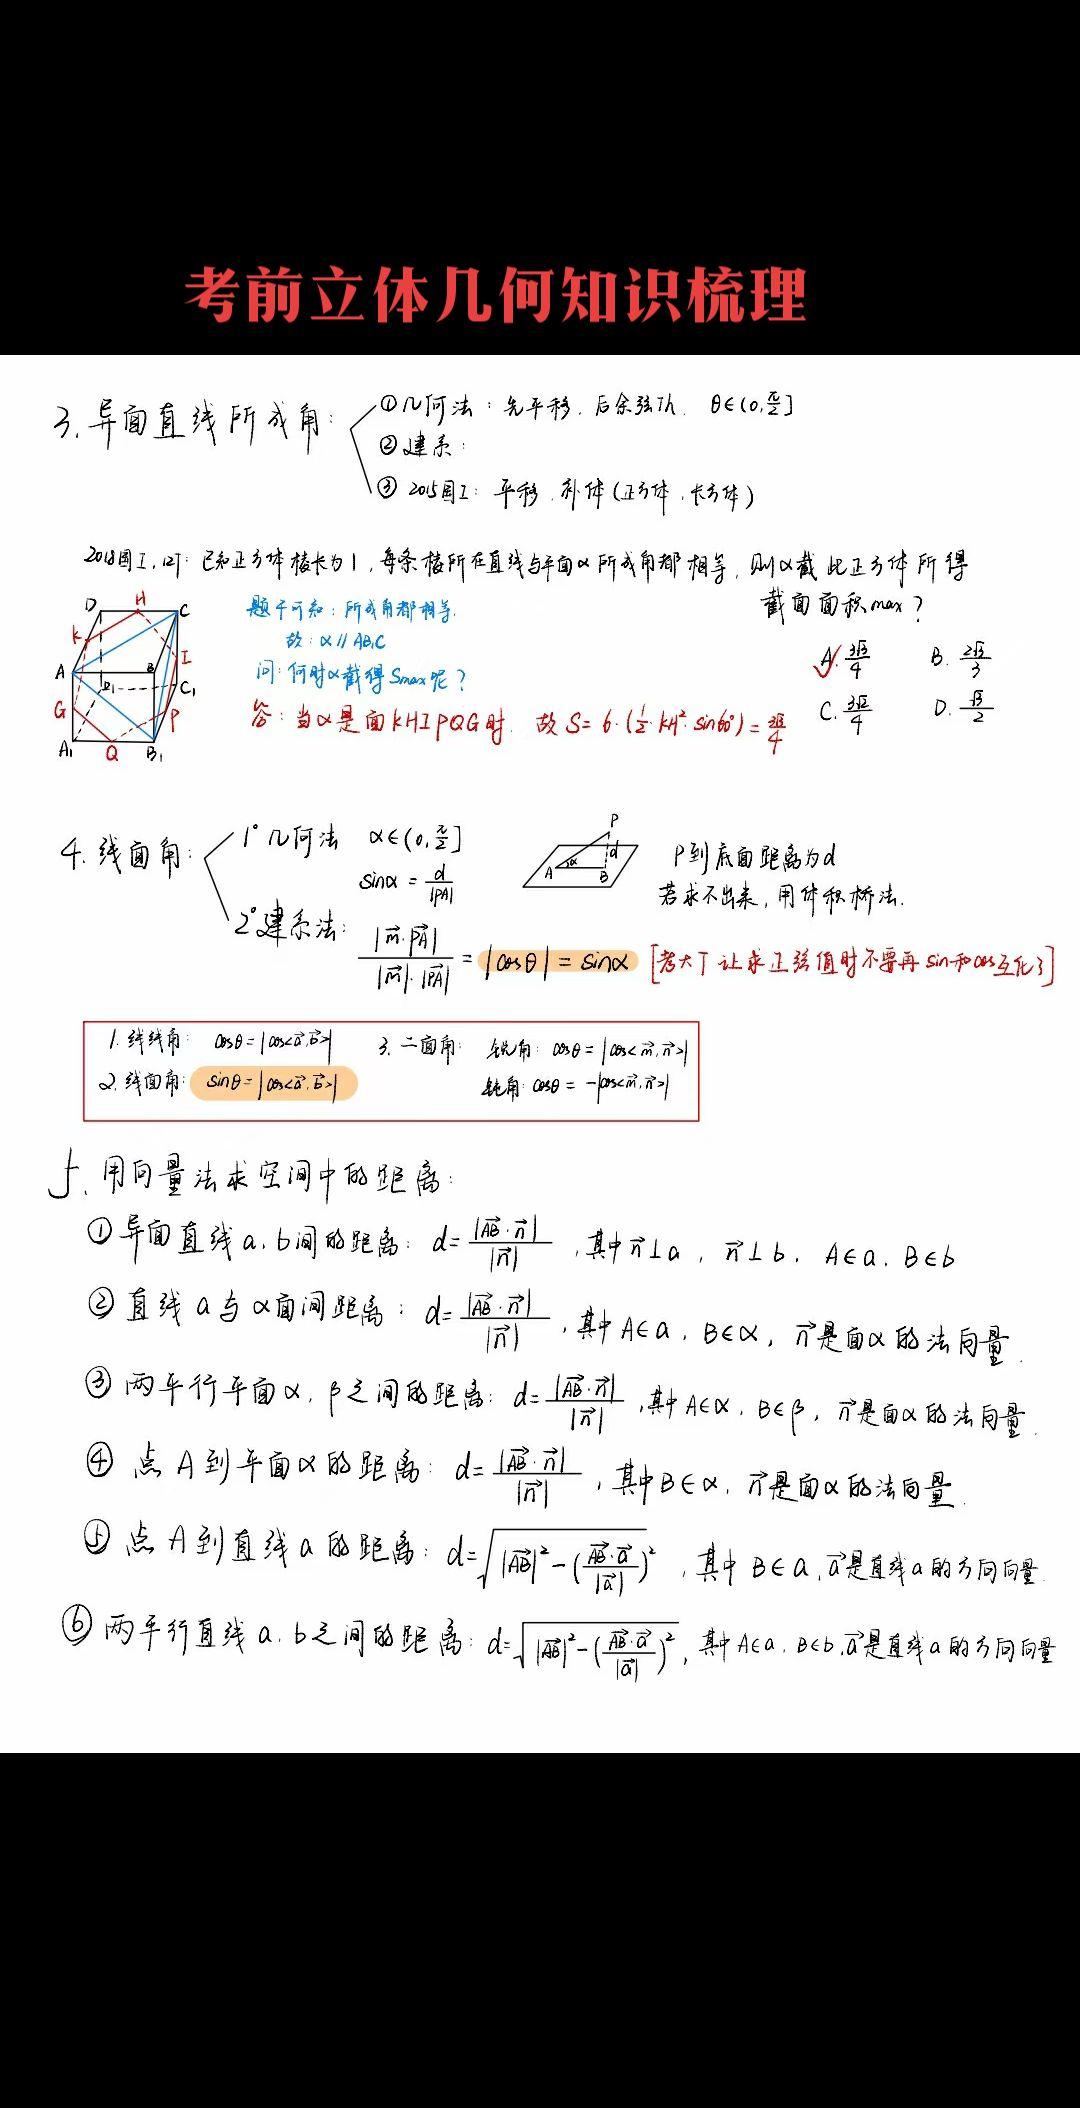 考前立体几何知识梳理
3. 异面直线所成角:
①几何法: 先平移, 后余弦Th. θ∈(0,π/2]
②建系:
③ 2015国I: 平移, 补体(正方体, 长方体)
2018国I, 12T: 已知正方体棱长为1, 每条棱所在直线与平面α所成角都相等, 则α截此正方体所得
截面面积max?
题干可知: 所成角都相等.
故: α // AB₁C
问: 何时α截得Smax呢?
答: 当α是面KHIPQG时. 故S=6·(1/2·KH²·sin60°)=3√3/4
A. 3√3/4 B. 2√3/3
C. 3√2/4 D. √3/2
D H C
K
A B I
D₁ C₁
G P
A₁ Q B₁
4. 线面角:
1° 几何法 α∈(0,π/2]
sinα = d/|PA|
P
d
A α B
P到底面距离为d
若求不出来, 用体积桥法.
2° 建系法: |m⃗·PA⃗|/(|m⃗|·|PA⃗|) = |cosθ| = sinα [考大T让求正弦值时不要再sin和cos互化了]
1. 线线角: cosθ=|cos<a⃗,b⃗>| 3. 二面角: 锐角: cosθ=|cos<m⃗,n⃗>|
2. 线面角: sinθ=|cos<a⃗,b⃗>| 钝角: cosθ=-|cos<m⃗,n⃗>|
5. 用向量法求空间中的距离:
① 异面直线a, b间的距离: d=|AB⃗·n⃗|/|n⃗|, 其中n⃗⊥a, n⃗⊥b, A∈a, B∈b
② 直线a与α面间距离: d=|AB⃗·n⃗|/|n⃗|, 其中A∈a, B∈α, n⃗是面α的法向量.
③ 两平行平面α, β之间的距离: d=|AB⃗·n⃗|/|n⃗|, 其中A∈α, B∈β, n⃗是面α的法向量.
④ 点A到平面α的距离: d=|AB⃗·n⃗|/|n⃗|, 其中B∈α, n⃗是面α的法向量.
⑤ 点A到直线a的距离: d=√(|AB⃗|²-(AB⃗·a⃗/|a⃗|)²), 其中B∈a, a⃗是直线a的方向向量.
⑥ 两平行直线a, b之间的距离: d=√(|AB⃗|²-(AB⃗·a⃗/|a⃗|)²), 其中A∈a, B∈b, a⃗是直线a的方向向量